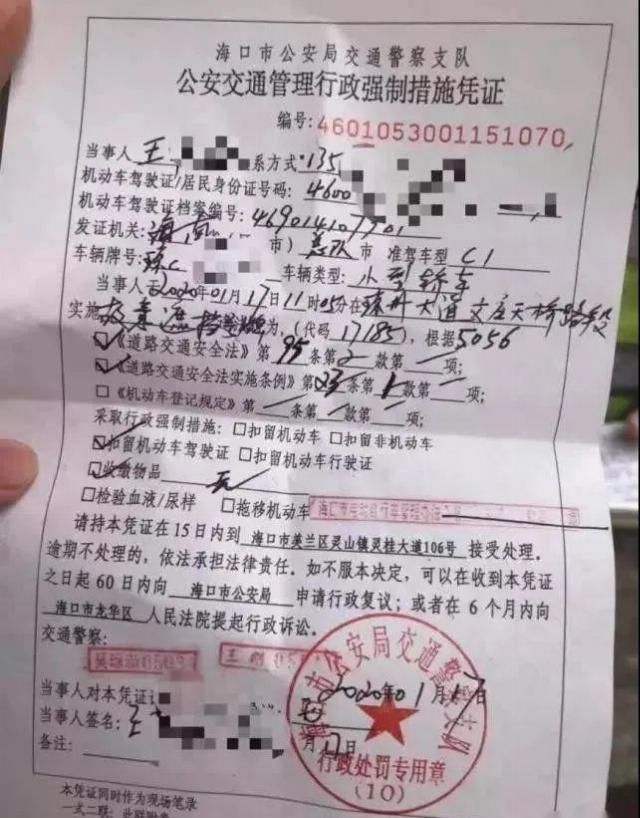 海口市公安局交通警察支队
公安交通管理行政强制措施凭证
编号:4601053001151070
当事人 王 系方式 135
机动车驾驶证/居民身份证号码: 4600
机动车驾驶证档案编号: 469014107901
发证机关: 海南 市) 总队 市 准驾车型 C1
车辆牌号: 琼C 车辆类型: 小型轿车
当事人于2020年01月17日11时05分在琼州大道文庄天桥路段
实施故意遮挡号牌为,(代码17185),根据5056
☑《道路交通安全法》第95条第2款第 项;
☑《道路交通安全法实施条例》第23条第1款第 项;
□《机动车登记规定》第 条第 款第 项;
采取行政强制措施:□扣留机动车 □扣留非机动车
☑扣留机动车驾驶证 □扣留机动车行驶证
☑收缴物品 无
□检验血液/尿样 □拖移机动车
请持本凭证在15日内到 海口市美兰区灵山镇灵桂大道106号 接受处理。
逾期不处理的,依法承担法律责任。如不服本决定,可以在收到本凭证
之日起60日内向 海口市公安局 申请行政复议;或者在6个月内向
海口市龙华区 人民法院提起行政诉讼。
交通警察:
2020年01月17日
当事人对本凭证
当事人签名: 王 月17日
备注:
海口市公安局交通警察支队
行政处罚专用章
(10)
本凭证同时作为现场笔录
一式二联:此联附卷